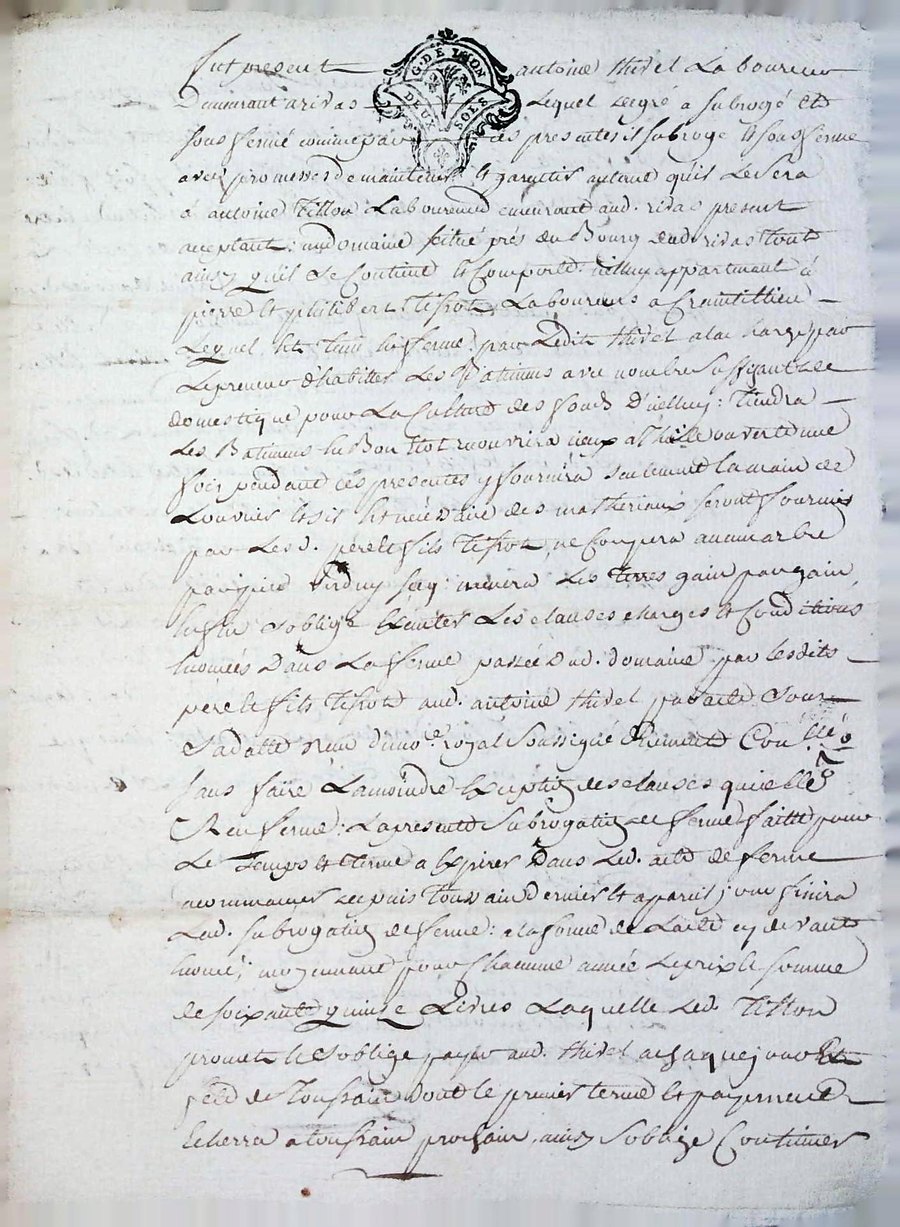 Fut present antoine thivel Laboureur
G. DE LYON
DEUX SOLS
Demeurant a rivas Lequel de gré a subrogé et
sous fermé comme par ces presentes il subroge et sous ferme
avec promesses de maintenir et garantir autant quil le sera
a antoine Tisson Laboureur demeurant aud. rivas present
acceptant; un domaine scitué prés du Bourg dud. rivas tout
ainsy quil se Contient et Comporte, icelluy appartenant à
pierre et philibert Laboureurs a Craintillieu
Lequel est tenu en ferme par Ledit thivel a la charge par
Le preneur d'habiter Les Batimens avec nombre suffisant de
domestique pour La Culture des fonds d'icelluy; tiendra
Les Batimens en Bon Etot recouvrira iceux a thuille ouverte une
fois pendant ces presentes y fournira seulement la main de
Louvrier et sil est nécéssaire des matheriaux seront fournis
par Lesd. pere et fils ne Coupera aucun arbre
par pied verd ny secq; menera Les terres gain par gain,
enfin soblige Executer Les clauses charges et Conditions
Enoncées Dans La ferme passée dud. domaine par lesdits
pere et fils aud. antoine thivel par acte sour
sa datte recu du no.re royal soussigné Duement Conllé
sans faire La moindre Exception des clauses quielle
Renferme; La presente subrogation de ferme faitte pour
Le temps et terme a Expirer Dans Led. acte de ferme
a commancer depuis toussaind dernier et a pareil jour finira
Lad. subrogation de ferme; a la forme de Lacte cy devant
Enoncé; moyennant pour Chacune année Le prix et somme
de soixante quinze Livres Laquelle Led. Tisson
promet et soblige payer aud. thivel a chaque jour Et
feste de Toussain dont le premier terme et payement
Echerra a toussain prochain, ainsy soblige Continuer